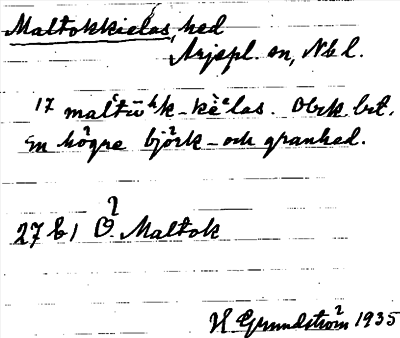 Maltokkielas, hed
Arjepl. sn, Nbl.
17 maltŭʰk-kèᵉlas. Obrk brt.
En högre björk- och granhed.
27 b 1 O Maltok
H Grundström 1935